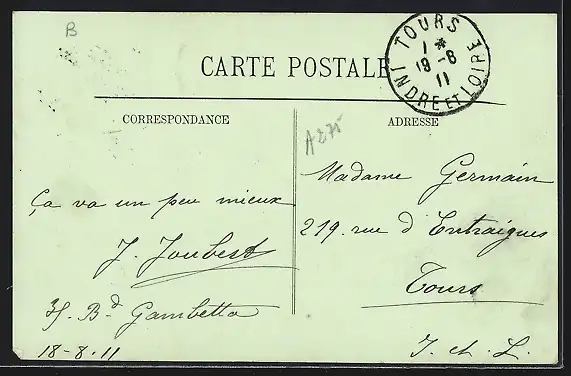 B
TOURS
1 *
19 - 8
11
INDRE ET LOIRE
CARTE POSTALE
CORRESPONDANCE
ADRESSE
A275
Ça va un peu mieux
J. Joubert
35. Bd Gambetta
18-8-11
Madame Germain
219. rue d'Entraigues
Tours
I. et L.